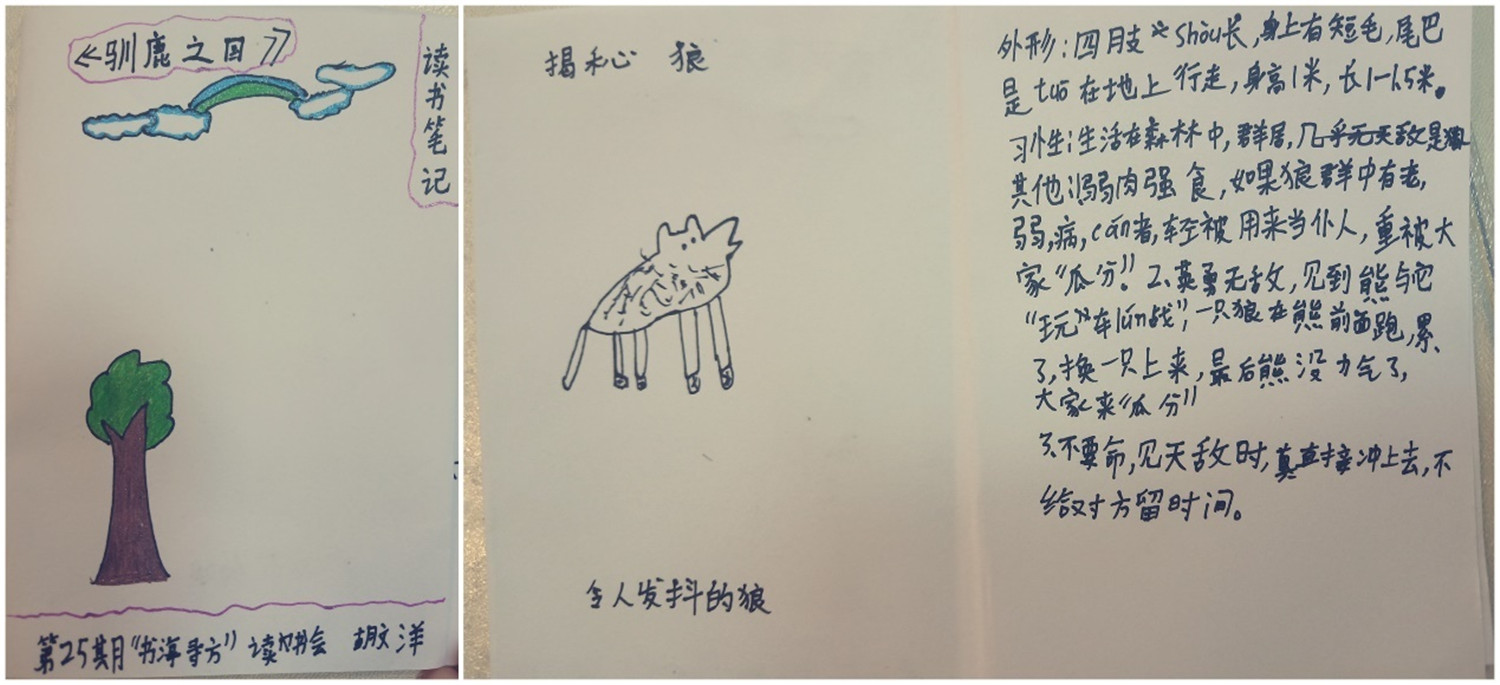 《驯鹿之国》
读书笔记
第25期"书海寻方"读书会 胡文洋
揭秘 狼
令人发抖的狼
外形:四肢shòu长,身上有短毛,尾巴
是tuō在地上行走,身高1米,长1-1.5米。
习性:生活在森林中,群居,几乎无天敌是狼
其他:1.弱肉强食,如果狼群中有老,
弱,病,cán者,轻被用来当仆人,重被大
家"瓜分"。2、英勇无敌,见到熊与它
"玩"车lún战",一只狼在熊前面跑,累
了,换一只上来,最后熊没力气了,
大家来"瓜分"
3、不要命,见天敌时,直接冲上去,不
给对方留时间。